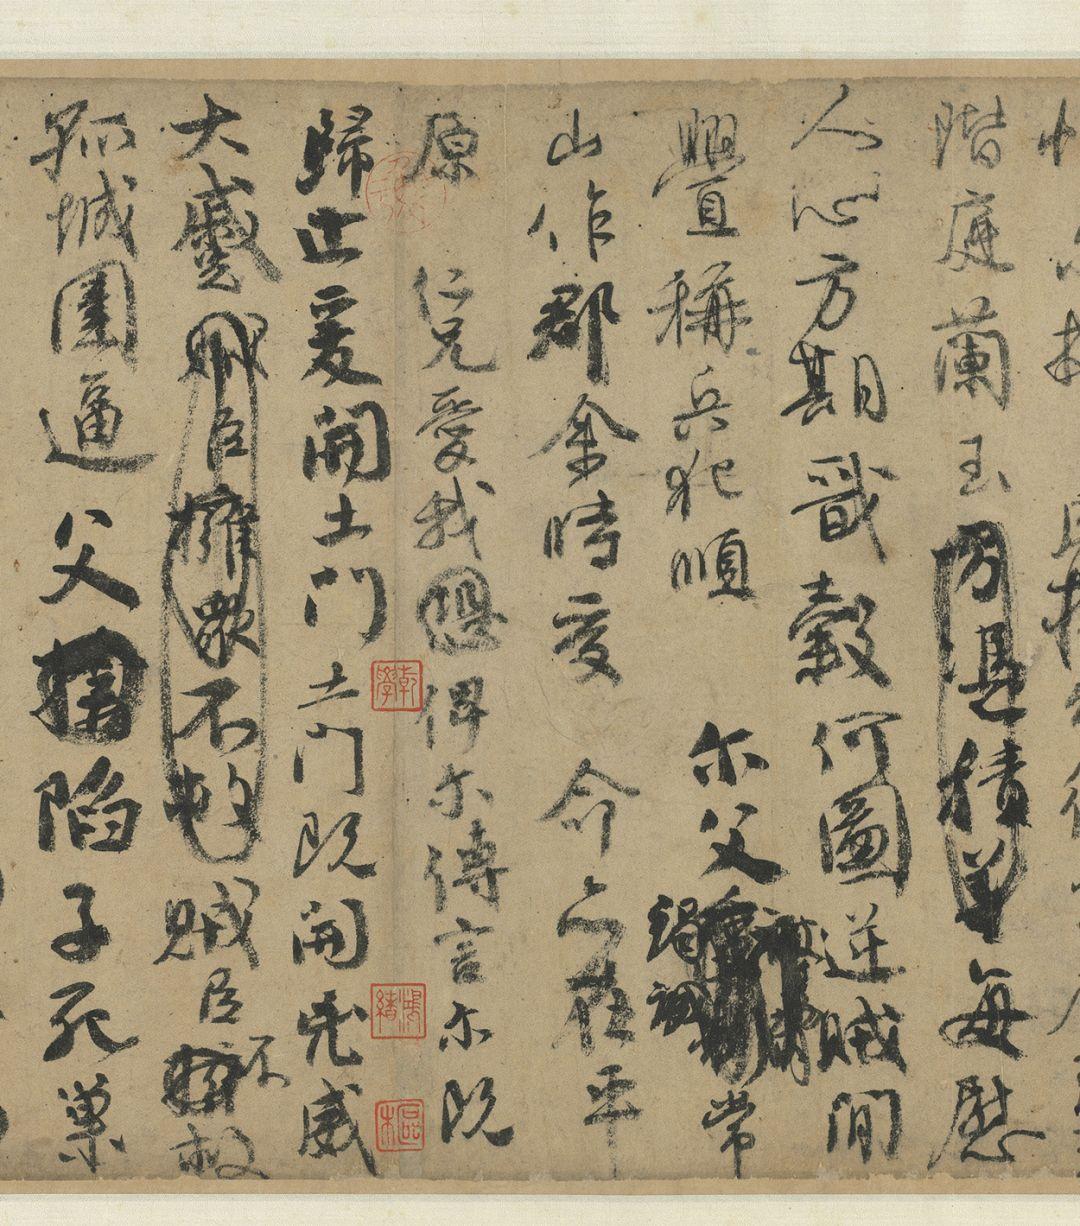 階庭蘭玉方憑積善每慰
人心方期戩穀何圖逆賊閒
舋稱兵犯順尔父竭誠常
山作郡余時受命亦在平
原仁兄愛我恐俾尔傳言尔既
歸止爰開土門土門既開凶威
大蹙賊臣擁衆不救賊臣不救
孤城圍逼父陷子死巢